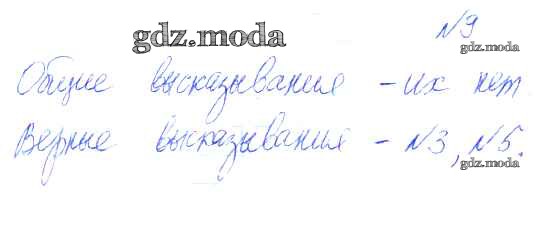 №9
gdz.moda
gdz.moda
Общие высказывания - их нет.
Верные высказывания - №3, №5.
gdz.moda